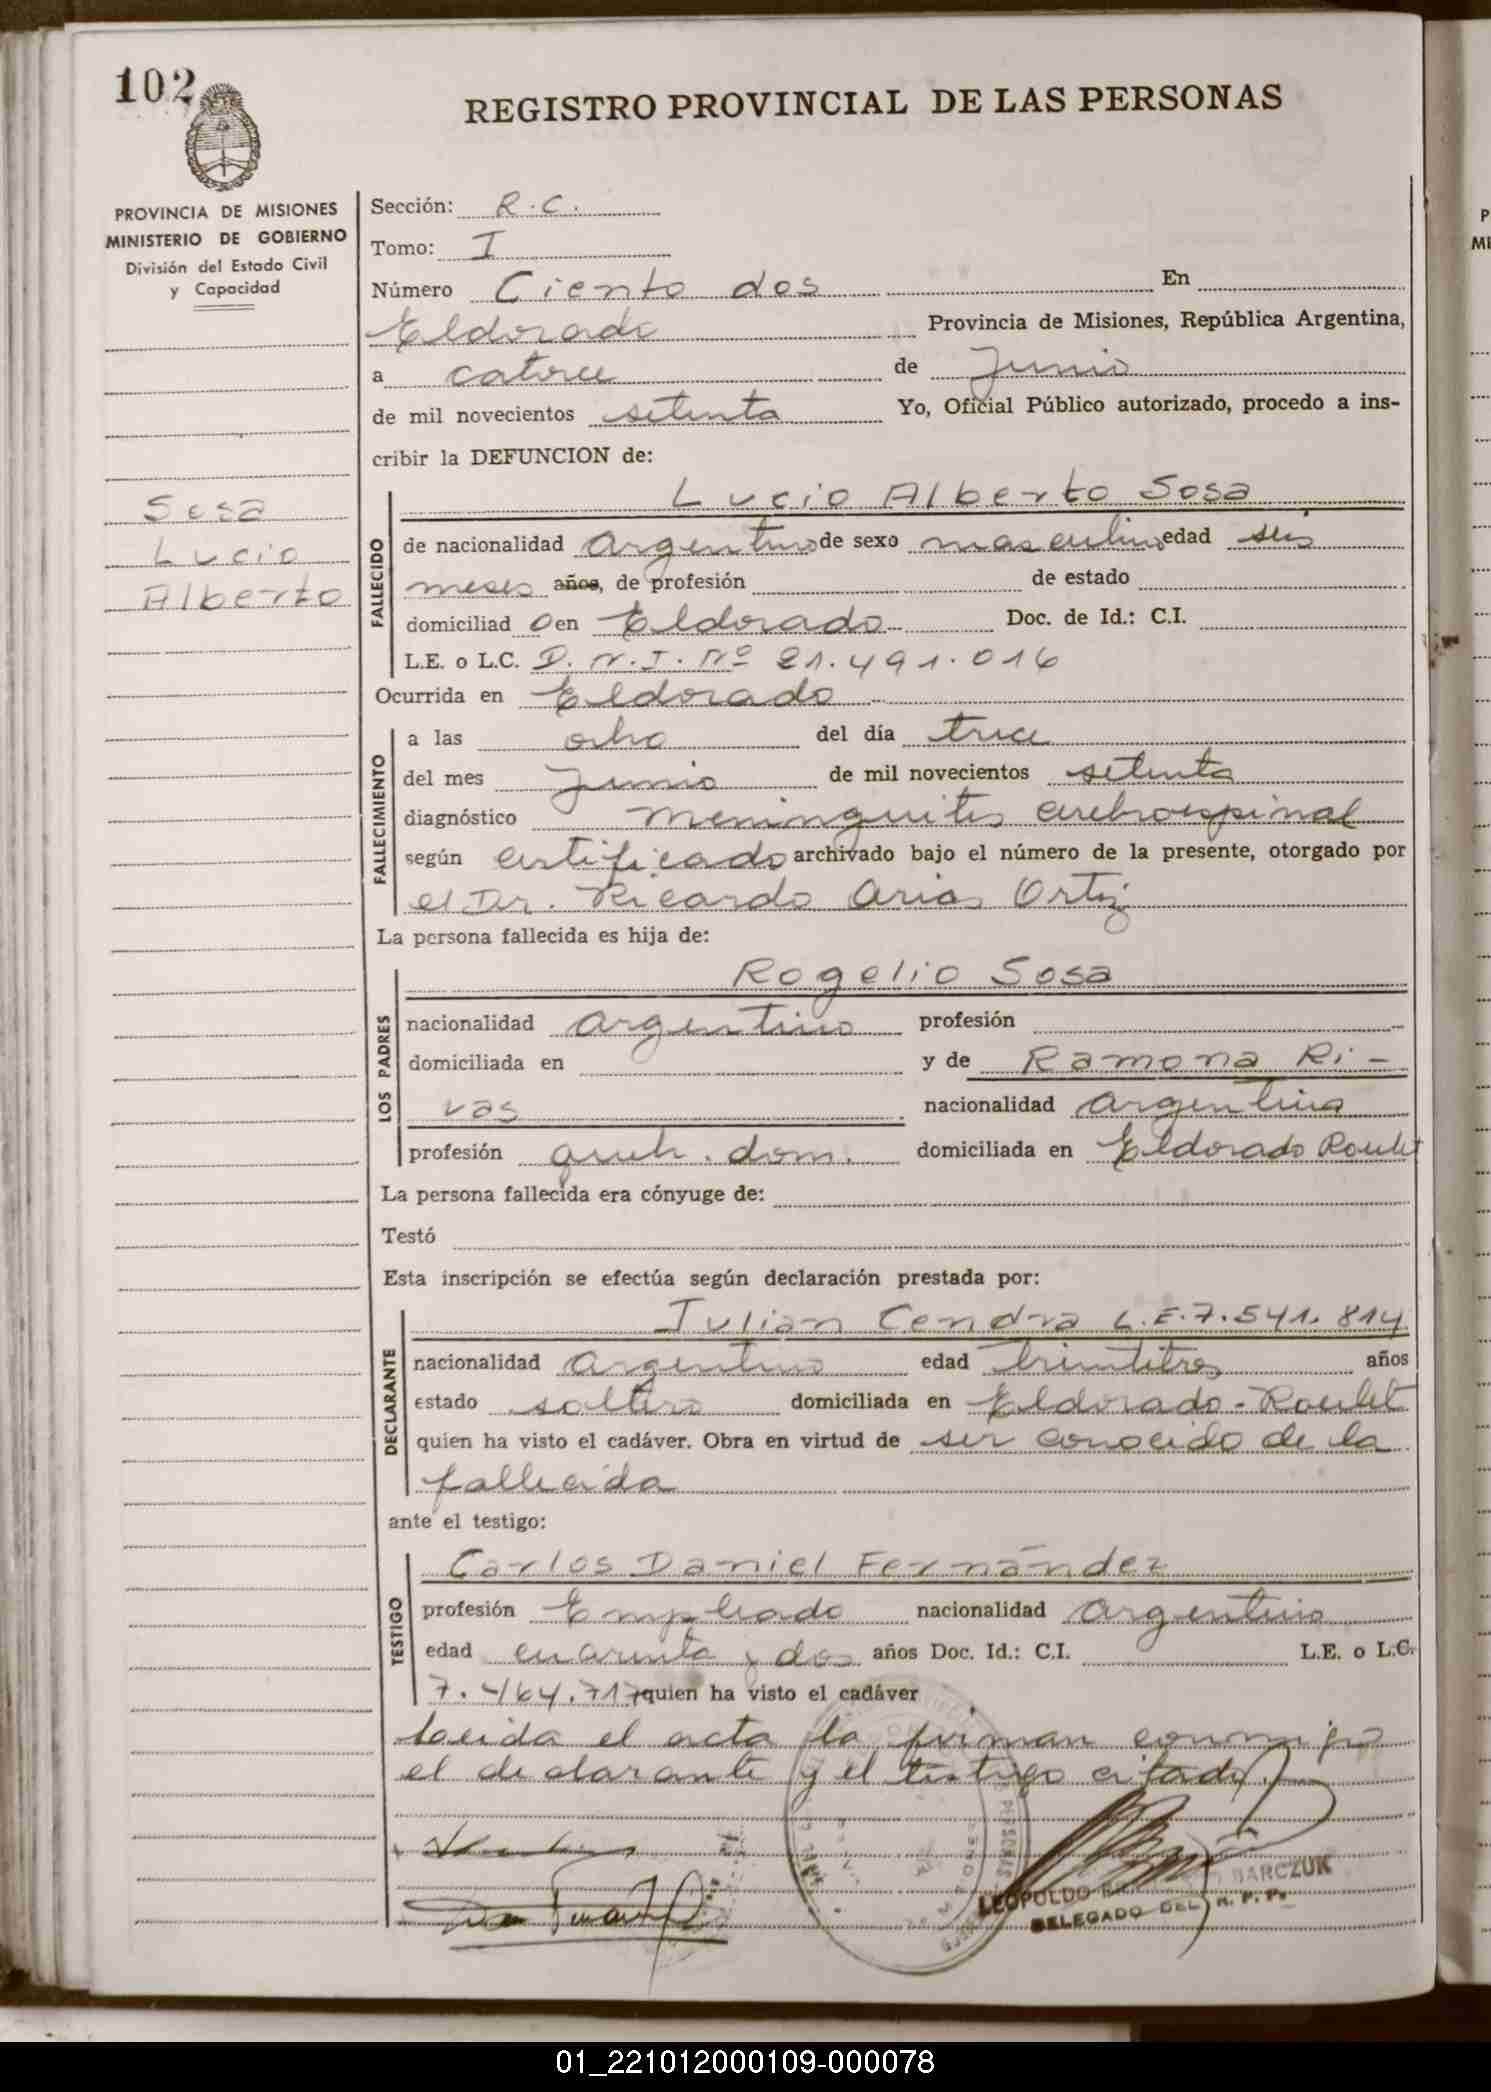 102
REGISTRO PROVINCIAL DE LAS PERSONAS
PROVINCIA DE MISIONES
MINISTERIO DE GOBIERNO
División del Estado Civil
y Capacidad
Sosa
Lucio
Alberto
Sección: R.C.
Tomo: I
Número Ciento dos En
Eldorado Provincia de Misiones, República Argentina,
a catorce de Junio
de mil novecientos setenta Yo, Oficial Público autorizado, procedo a ins-
cribir la DEFUNCION de:
FALLECIDO
Lucio Alberto Sosa
de nacionalidad argentino de sexo masculino edad seis
meses años, de profesión de estado
domiciliad o en Eldorado Doc. de Id.: C.I.
L.E. o L.C. D.N.I. Nº 21.491.016
Ocurrida en Eldorado
FALLECIMIENTO
a las ocho del día trece
del mes Junio de mil novecientos setenta
diagnóstico meninguitis cerebroespinal
según certificado archivado bajo el número de la presente, otorgado por
el Dr. Ricardo Arias Ortiz
La persona fallecida es hija de:
LOS PADRES
Rogelio Sosa
nacionalidad argentino profesión
domiciliada en y de Ramona Ri-
vas nacionalidad argentina
profesión queh. dom. domiciliada en Eldorado Roulet
La persona fallecida era cónyuge de:
Testó
Esta inscripción se efectúa según declaración prestada por:
DECLARANTE
Julian Cendra L.E. 7.541.814
nacionalidad argentino edad treintitres años
estado soltero domiciliada en Eldorado-Roulet
quien ha visto el cadáver. Obra en virtud de ser conocido de la
fallecida
ante el testigo:
TESTIGO
Carlos Daniel Fernández
profesión Empleado nacionalidad argentino
edad cuarenta y dos años Doc. Id.: C.I. L.E. o L.C.
7.464.717 quien ha visto el cadáver
Leida el acta la firman conmigo
el declarante y el testigo citado.
LEOPOLDO BARCZUK
DELEGADO DEL R. P. P.
01_221012000109-000078